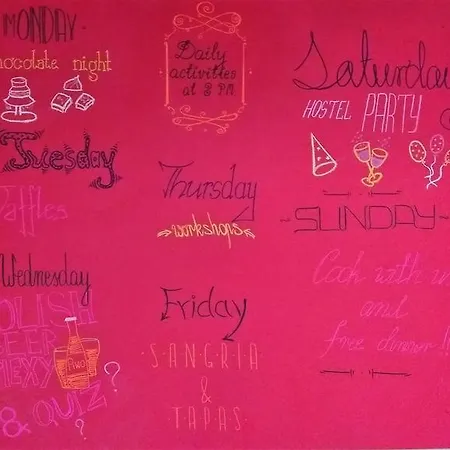 MONDAY
chocolate night
Tuesday
Waffles
Wednesday
POLISH
BEER
piwo
& QUIZ ?
?
Daily
activities
at 8 PM
Thursday
workshops
Friday
SANGRIA
&
TAPAS
Saturday
HOSTEL PARTY
SUNDAY
Cook with us
and
free dinner !!